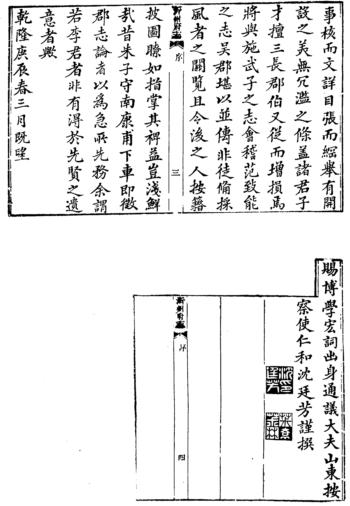 事核而文詳目張而綱舉有開
設之美無冗濫之條蓋諸君子
才擅三長郡伯又從而增損焉
將與施武子之志會稽范致能
之志吳郡堪以並傳非徒備採
風者之關覽且令後之人按籍
沂州府志
序
三
披圖瞭如指掌其裨益豈淺鮮
哉昔朱子守南康甫下車即徵
郡志論者以為急所先務余謂
若李君者非有得於先賢之遺
意者歟
乾隆庚辰春三月既望
賜博學宏詞出身通議大夫山東按
察使仁和沈廷芳謹撰
沂州府志
序
四